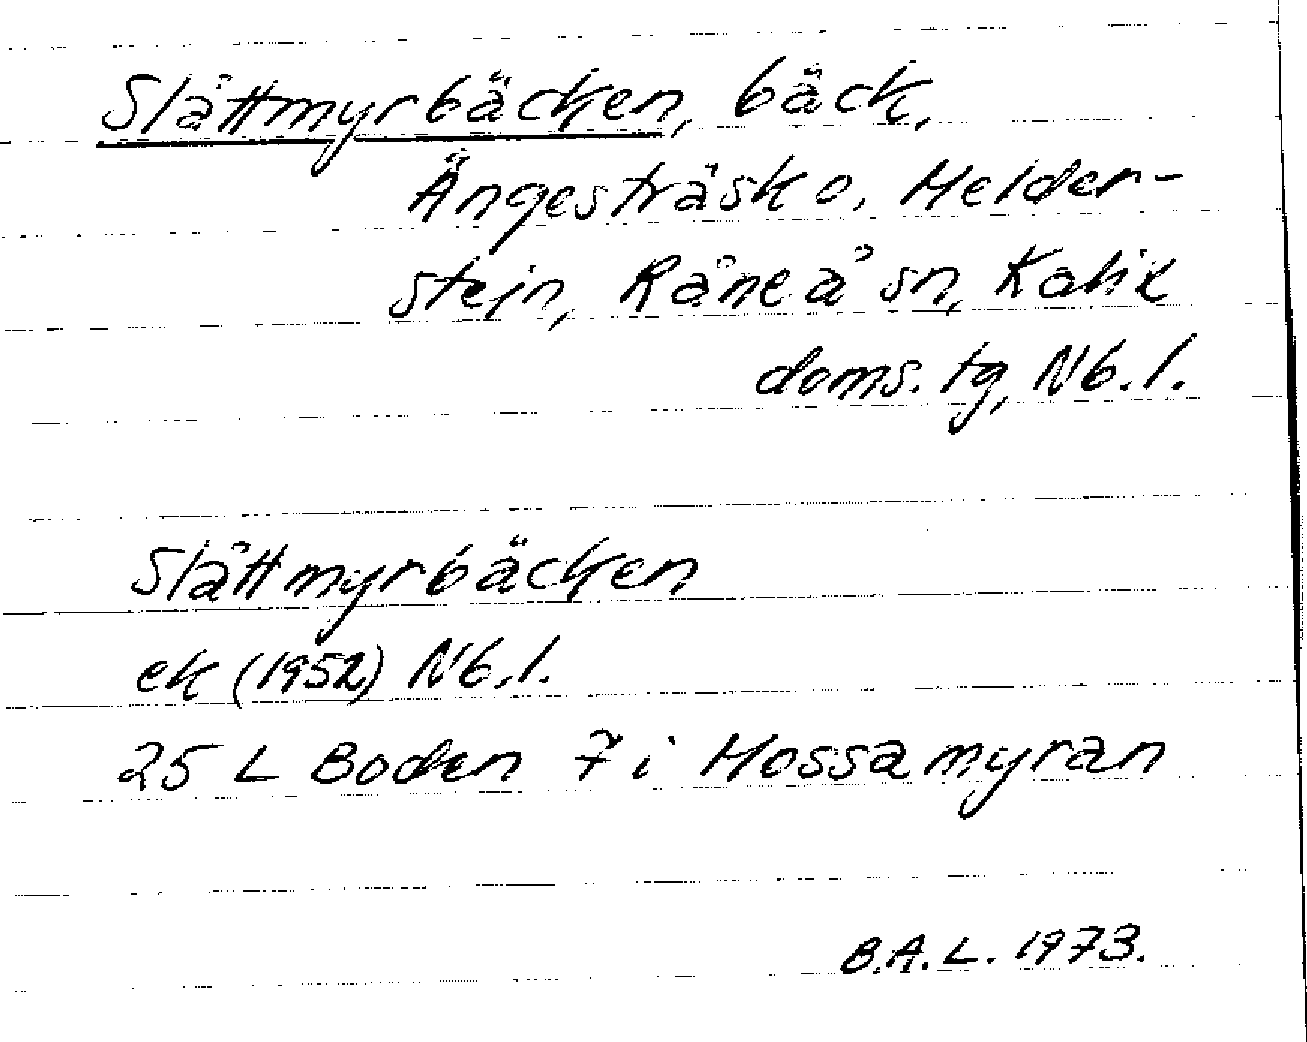 Slåttmyrbäcken, bäck,
Ängesträsk o. Melder-
stein, Råneå sn, Kalix
doms. tg, Nb. l.
Slåttmyrbäcken
ek (1952) Nb. l.
25 L Boden 7 i Mossamyran
B.A.L. 1973.